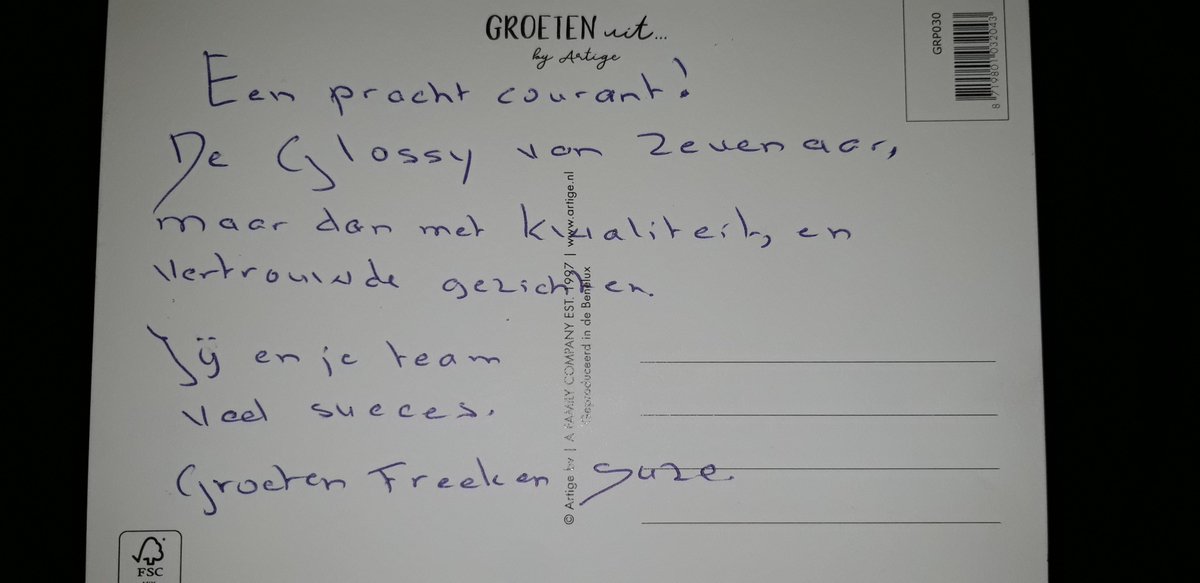 GROETEN uit...
by Artige
GRP030
8 719801 032043
Een pracht courant!
De Glossy van Zevenaar,
maar dan met kwaliteit, en
vertrouwde gezichten.
Jij en je team
veel succes.
Groeten Freek en Suze.
© Artige bv | A FAMILY COMPANY EST. 1997 | www.artige.nl
Geproduceerd in de Benelux
FSC